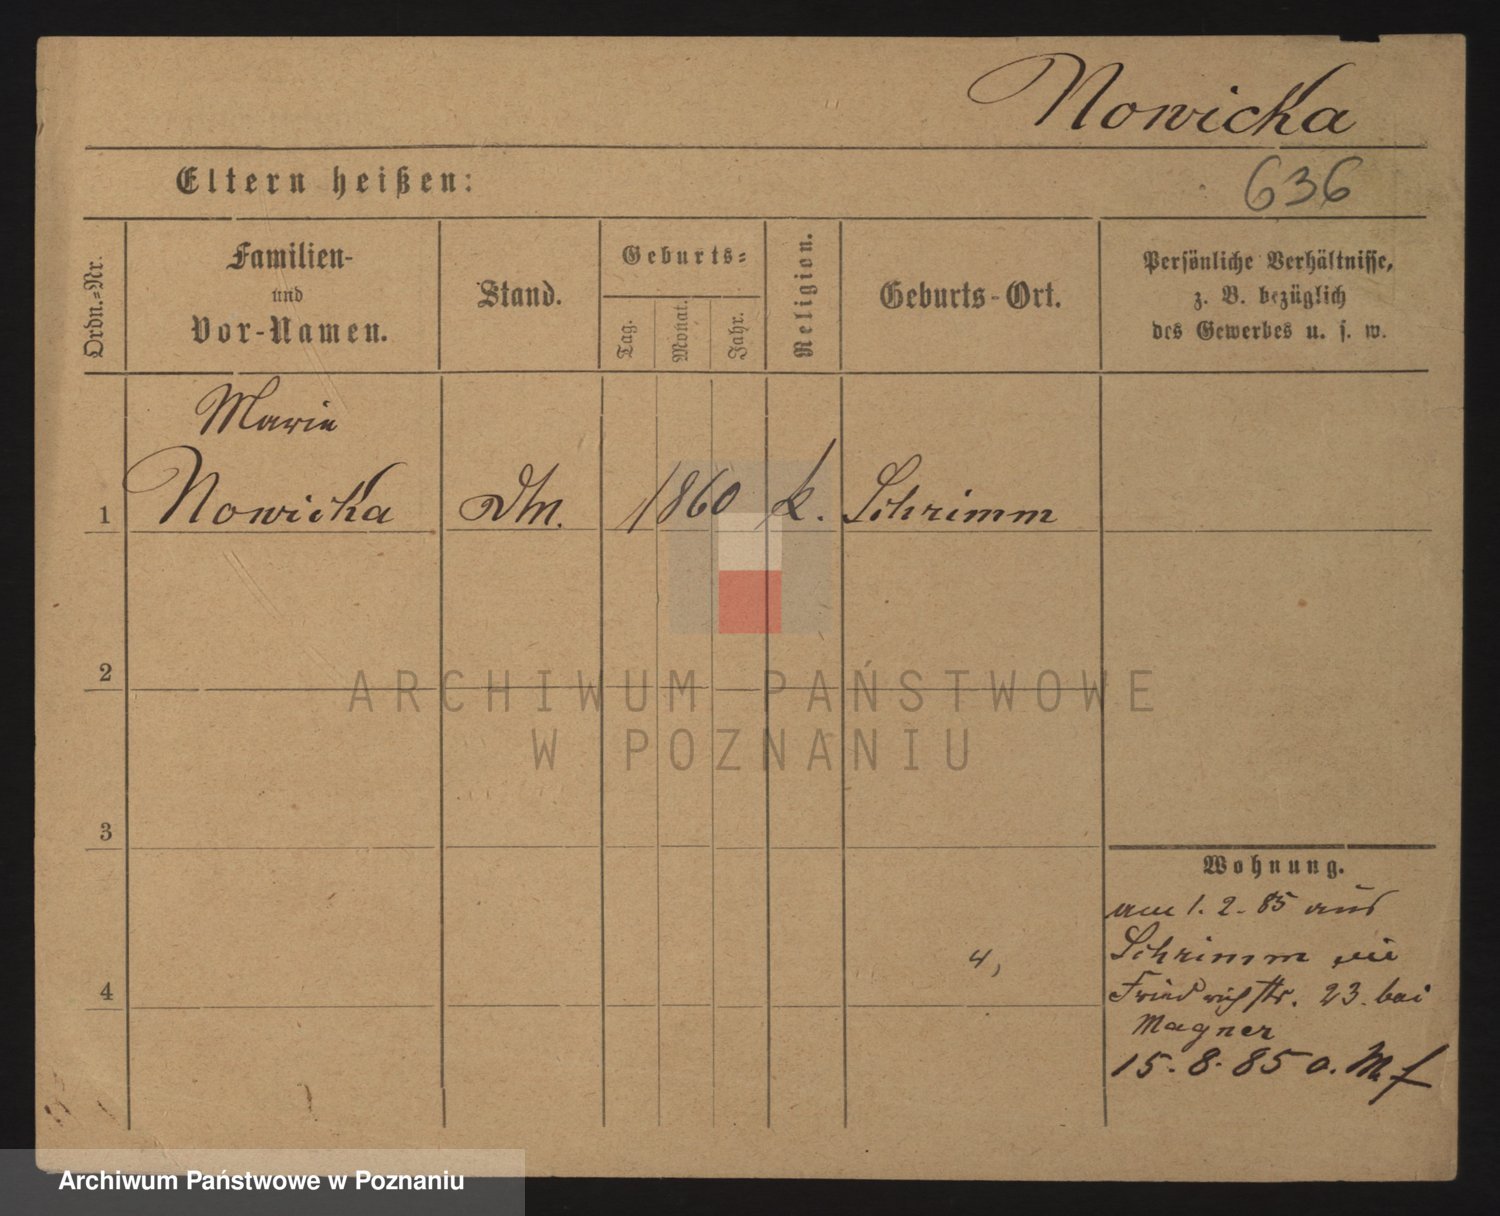 Nowicka
Eltern heißen:
636
Ordn.=Nr.
Familien-
und
Vor-Namen.
Stand.
Geburts=
Tag.
Monat.
Jahr.
Religion.
Geburts-Ort.
Persönliche Verhältnisse,
z. B. bezüglich
des Gewerbes u. s. w.
Marie
1 Nowicka Dm. 1860 k. Schrimm
2
ARCHIWUM PAŃSTWOWE
W POZNANIU
3
Wohnung.
am 1. 2. 85 aus
Schrimm
4
4,
Friedrichstr. 23. bei
Magner
15. 8. 85 o.
Archiwum Państwowe w Poznaniu